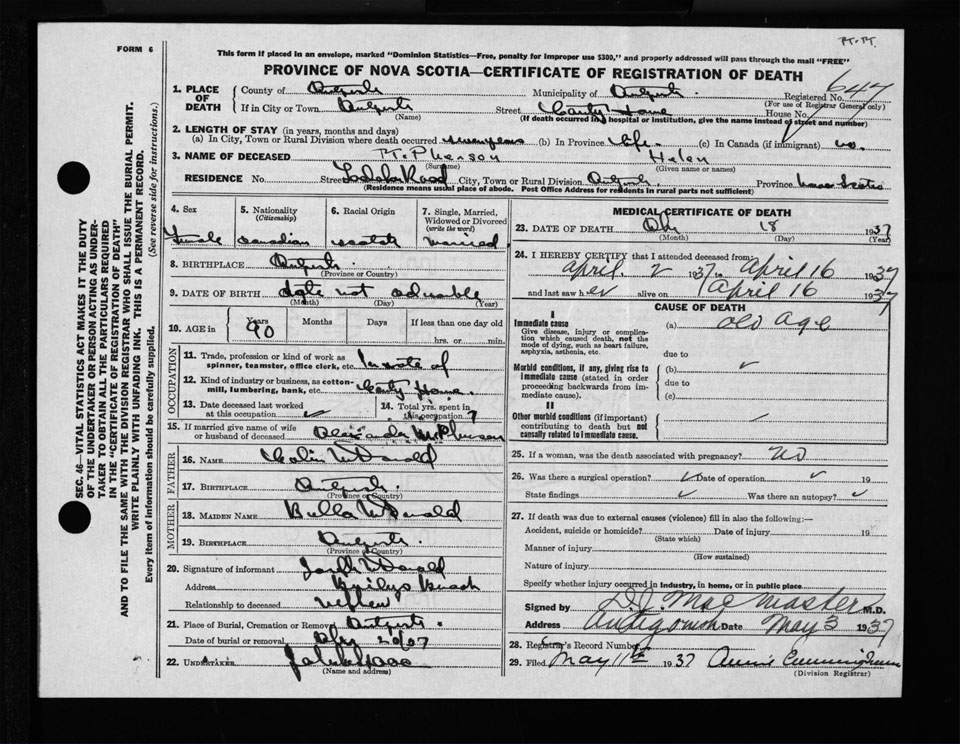 FORM 6
This form if placed in an envelope, marked "Dominion Statistics—Free, penalty for improper use $300," and properly addressed will pass through the mail "FREE"
PROVINCE OF NOVA SCOTIA—CERTIFICATE OF REGISTRATION OF DEATH
647
SEC. 46—VITAL STATISTICS ACT MAKES IT THE DUTY
OF THE UNDERTAKER OR PERSON ACTING AS UNDER-
TAKER TO OBTAIN ALL THE PARTICULARS REQUIRED
IN THE "CERTIFICATE OF REGISTRATION OF DEATH"
AND TO FILE THE SAME WITH THE DIVISION REGISTRAR WHO SHALL ISSUE THE BURIAL PERMIT.
WRITE PLAINLY WITH UNFADING INK. THIS IS A PERMANENT RECORD.
Every item of information should be carefully supplied.
(See reverse side for instructions.)
1. PLACE OF DEATH
County of Municipality of Registered No.
(For use of Registrar General only)
If in City or Town Street County Home House No.
(Name) (If death occurred in a hospital or institution, give the name instead of street and number)
2. LENGTH OF STAY (in years, months and days)
(a) In City, Town or Rural Division where death occurred (b) In Province Life (c) In Canada (if immigrant)
3. NAME OF DECEASED McPherson Helen
(Surname) (Given name or names)
RESIDENCE No. Street Road City, Town or Rural Division Province Nova Scotia
(Residence means usual place of abode. Post Office Address for residents in rural parts not sufficient)
4. Sex 5. Nationality (Citizenship) 6. Racial Origin 7. Single, Married, Widowed or Divorced (write the word)
Female Canadian Scotch Married
8. BIRTHPLACE
(Province or Country)
9. DATE OF BIRTH date not
(Month) (Day) (Year)
10. AGE in Years Months Days If less than one day old
90 hrs. or min.
OCCUPATION
11. Trade, profession or kind of work as spinner, teamster, office clerk, etc. Inmate of
12. Kind of industry or business, as cotton-mill, lumbering, bank, etc. County Home
13. Date deceased last worked at this occupation 14. Total yrs. spent in this occupation 7
15. If married give name of wife or husband of deceased McPherson
FATHER
16. NAME Colin McDonald
17. BIRTHPLACE
(Province or Country)
MOTHER
18. MAIDEN NAME Bella McDonald
19. BIRTHPLACE
(Province or Country)
20. Signature of informant McDonald
Address
Relationship to deceased nephew
21. Place of Burial, Cremation or Removal
Date of burial or removal
22. UNDERTAKER
(Name and address)
MEDICAL CERTIFICATE OF DEATH
23. DATE OF DEATH 18 1937
(Month) (Day) (Year)
24. I HEREBY CERTIFY that I attended deceased from:
April 2 1937 to April 16 1937
and last saw her alive on April 16 1937
CAUSE OF DEATH
I
Immediate cause
Give disease, injury or complication which caused death, not the mode of dying, such as heart failure, asphyxia, asthenia, etc.
(a) old age
due to
Morbid conditions, if any, giving rise to immediate cause (stated in order proceeding backwards from immediate cause).
(b)
due to
(c)
II
Other morbid conditions (if important) contributing to death but not causally related to immediate cause.
25. If a woman, was the death associated with pregnancy? no
26. Was there a surgical operation? Date of operation 19
State findings Was there an autopsy?
27. If death was due to external causes (violence) fill in also the following:—
Accident, suicide or homicide? Date of injury 19
(State which)
Manner of injury
(How sustained)
Nature of injury
Specify whether injury occurred in industry, in home, or in public place
Signed by MacMaster M.D.
Address Antigonish Date May 3 1937
28. Registrar's Record Number
29. Filed May 11th 1937 Annie Cunningham
(Division Registrar)